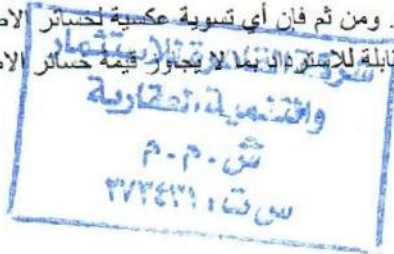 . ومن ثم فإن أي تسوية عكسية لخسائر الاض
قابلة للاسترداد بما لا يجاوز قيمة خسائر الاض
شركة القاهرة للاستثمار
والتنمية العقارية
ش.م.م
س ت: ٣٧٣٤٣١